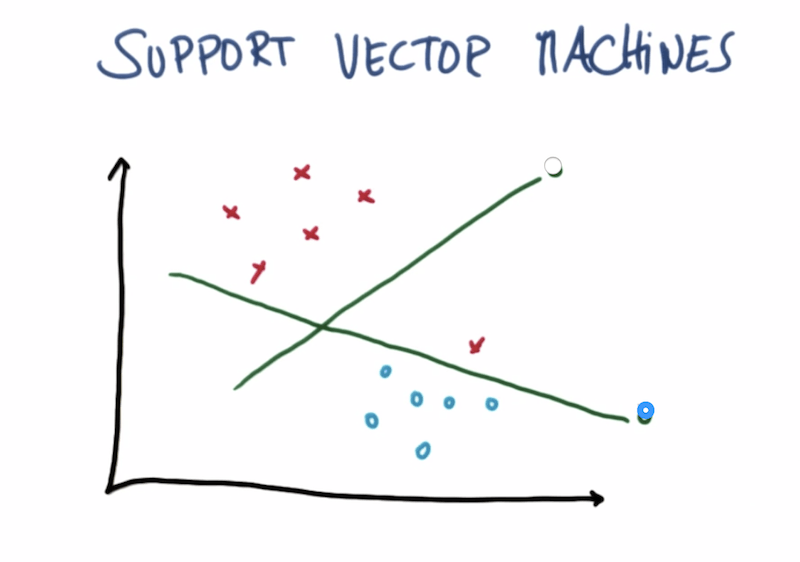 SUPPORT VECTOR MACHINES